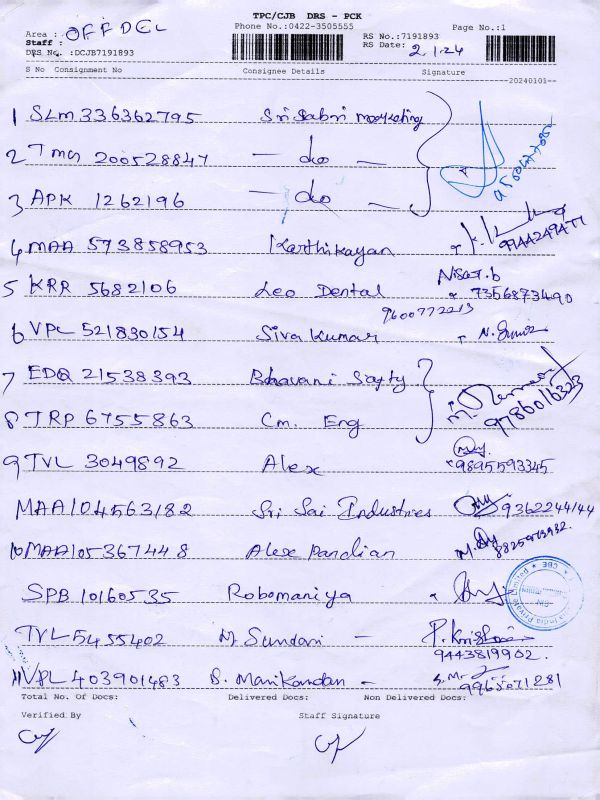 TPC/CJB DRS - PCK
Area : OFFDEL
Phone No.:0422-3505555
Page No.:1
Staff :
RS No.:7191893
DRS No. :DCJB7191893
RS Date: 2.1.24
S No Consignment No Consignee Details Signature
20240101
1 SLM 336362795 Sri Sabri Marketing
2 TMG 200528847 — do —
3 APK 1262196 — do —
4 MAA 593858953 Karthikayan 9944249477
5 KRR 5682106 Leo Dental Nisar.b 7356873490
9600772213
6 VPL 521830154 Siva Kumar
7 EDQ 21538393 Bhavani
8 TRP 6755863 Cm. Eng 9786016323
9 TVL 3049892 Alex 9895593345
MAA 104563182 Sri Sai Industries 9362244144
10 MAA 105367448 Alex Pandian
SPB 10160535 Robomaniya
TVL 5455402 M. Sundari — 9443819902.
11 VPL 403901483 S. Manikandan —
Total No. Of Docs: Delivered Docs: Non Delivered Docs:
Verified By Staff Signature